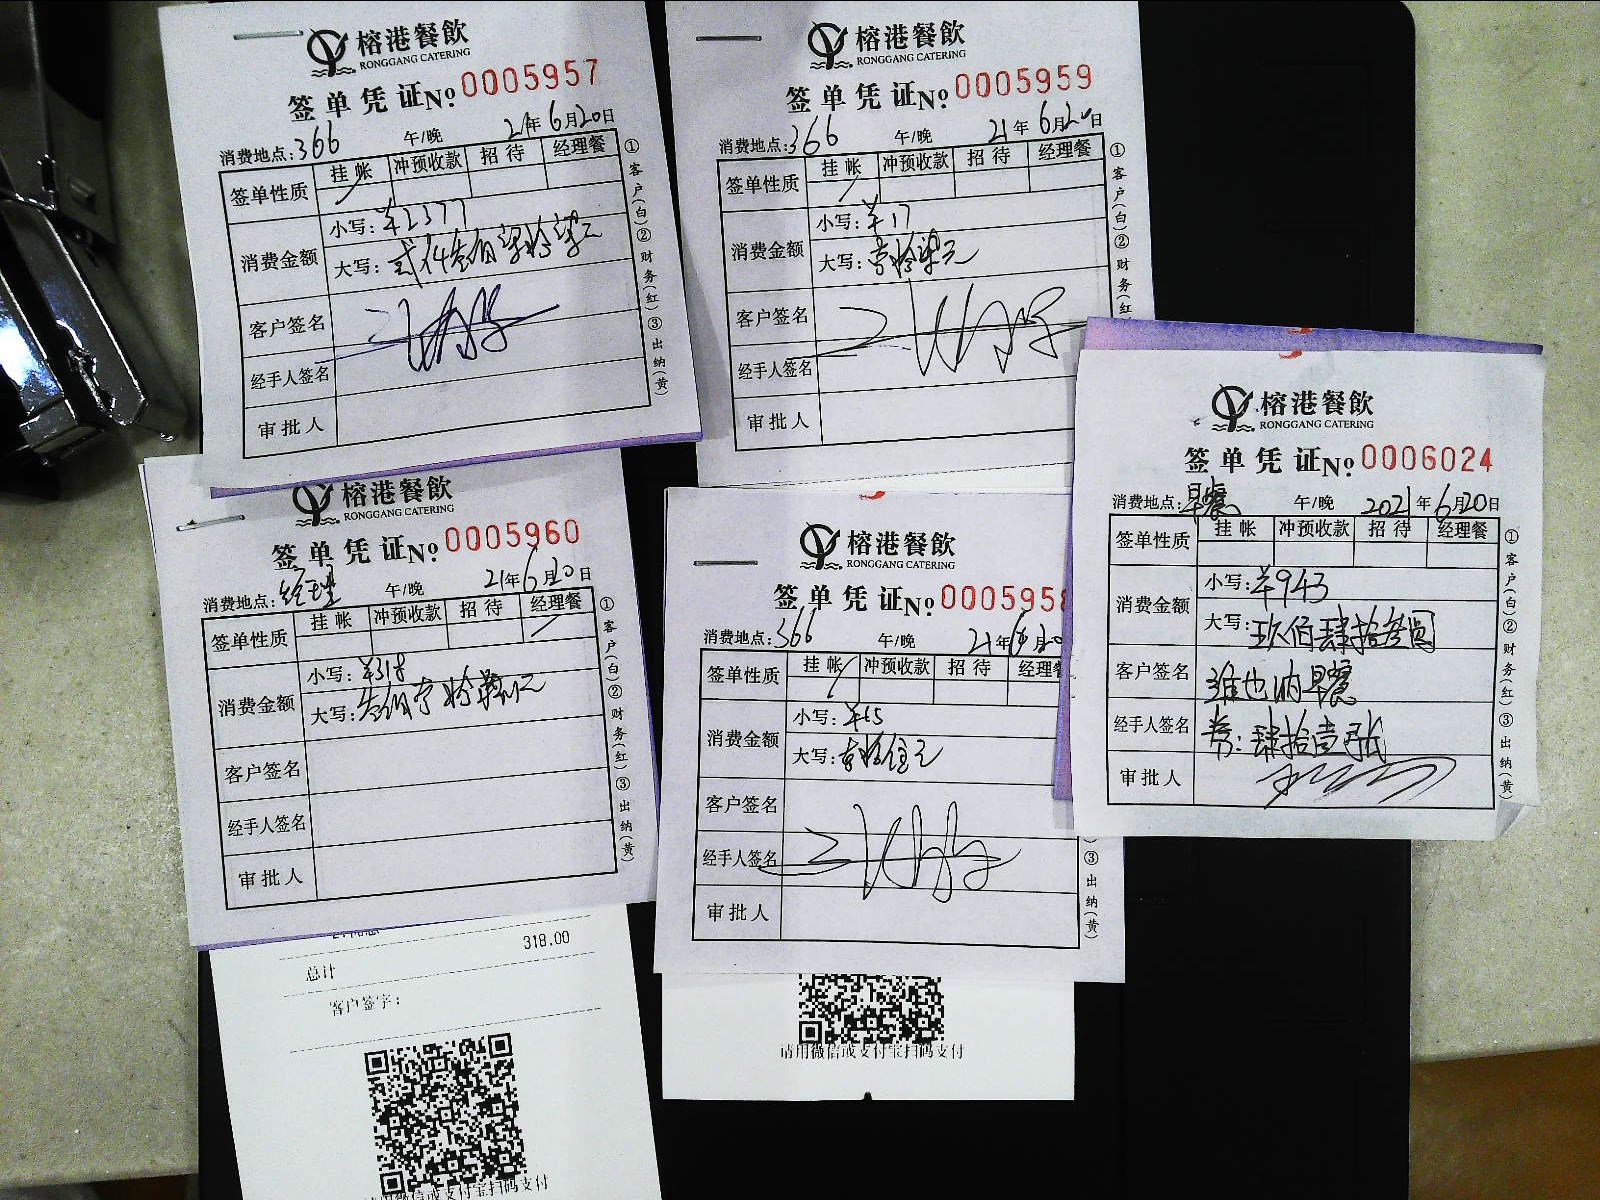 榕港餐飲
RONGGANG CATERING
签单凭证No 0005957
消费地点:366 午/晚 21年6月20日
签单性质 挂帐 冲预收款 招待 经理餐
消费金额 小写:¥2377
大写:贰仟叁佰柒拾柒元
客户签名
经手人签名
审批人
①客户(白)②财务(红)③出纳(黄)
榕港餐飲
RONGGANG CATERING
签单凭证No 0005959
消费地点:366 午/晚 21年6月20日
签单性质 挂帐 冲预收款 招待 经理餐
消费金额 小写:¥17
大写:壹拾柒元
客户签名
经手人签名
审批人
①客户(白)②财务(红)③出纳(黄)
榕港餐飲
RONGGANG CATERING
签单凭证No 0006024
消费地点:早餐 午/晚 2021年6月20日
签单性质 挂帐 冲预收款 招待 经理餐
消费金额 小写:¥943
大写:玖佰肆拾叁圆
客户签名 维也纳早餐
经手人签名 券:肆拾壹张
审批人
①客户(白)②财务(红)③出纳(黄)
榕港餐飲
RONGGANG CATERING
签单凭证No 0005960
消费地点:经理 午/晚 21年6月20日
签单性质 挂帐 冲预收款 招待 经理餐
消费金额 小写:¥318
大写:叁佰壹拾捌元
客户签名
经手人签名
审批人
①客户(白)②财务(红)③出纳(黄)
318.00
总计
客户签字:
请用微信或支付宝扫码支付
榕港餐飲
RONGGANG CATERING
签单凭证No 0005958
消费地点:366 午/晚 21年6月20
签单性质 挂帐 冲预收款 招待 经理餐
消费金额 小写:¥15
大写:壹拾伍元
客户签名
经手人签名
审批人
③出纳(黄)
请用微信或支付宝扫码支付